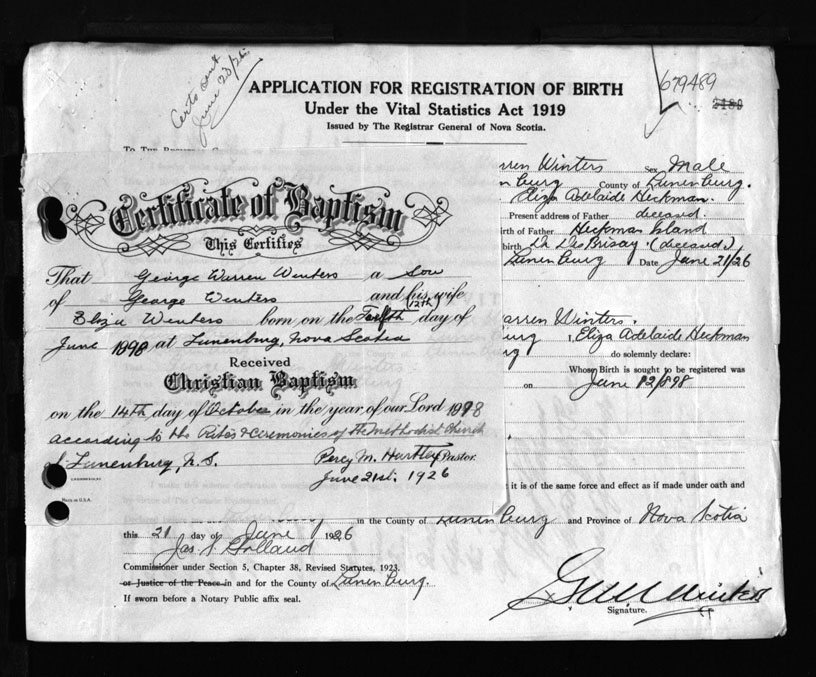 Certs sent
June 23/26
APPLICATION FOR REGISTRATION OF BIRTH
Under the Vital Statistics Act 1919
Issued by The Registrar General of Nova Scotia.
679489
2480
To The
rren Winters Sex Male
nburg County of Lunenburg.
Eliza Adelaide Heckman.
Present address of Father deceased.
irth of Father Heckman Island
birth Dr DesBrisay. (deceased.)
Lunenburg Date June 21/26
Certificate of Baptism
This Certifies
That George Warren Winters a Son
of George Winters and his wife
12th
Eliza Winters born on the day of
June 1898 at Lunenburg, Nova Scotia
Received
Christian Baptism
on the 14th day of October in the year of our Lord 1898
according to the Rites & Ceremonies of the Methodist Church
of Lunenburg, N.S. Percy M. Hartley Pastor.
June 21st. 1926
MADE IN U.S.A.
arren Winters.
urg I, Eliza Adelaide Heckman
rg do solemnly declare:
Whose Birth is sought to be registered was
on June 12/898
it is of the same force and effect as if made under oath and
in the County of Lunenburg and Province of Nova Scotia
this 21 day of June 1926
Commissioner under Section 5, Chapter 38, Revised Statutes, 1923.
or Justice of the Peace in and for the County of Lunenburg.
If sworn before a Notary Public affix seal.
Signature.